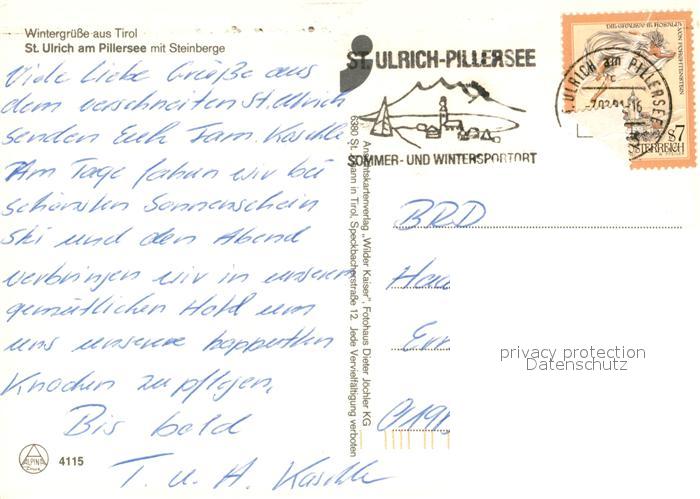 Wintergrüße aus Tirol
St. Ulrich am Pillersee mit Steinberge
Viele Liebe Grüße aus
dem verschneiten St. Ulrich
senden Euch Fam. Kaschke
Am Tage fahren wir bei
schönsten Sonnenschein
Ski und den Abend
verbringen wir in unserem
gemütlichen Hotel um
uns unsere kapputten
Knochen zu pflegen.
Bis bald
T. u. A. Kaschke
ALPINA
4115
Ansichtskartenverlag „Wilder Kaiser", Fotohaus Dieter Jöchler KG
6380 St. Johann in Tirol, Speckbacherstraße 12. Jede Vervielfältigung verboten
ST. ULRICH-PILLERSEE
SOMMER- UND WINTERSPORTORT
ULRICH am PILLERSEE
S7
ÖSTERREICH
BRD
privacy protection
Datenschutz